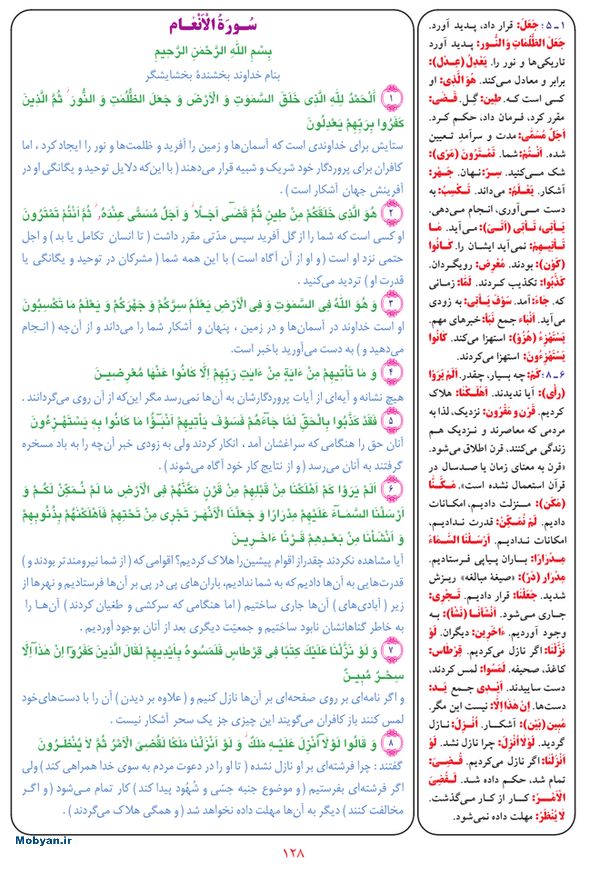 سُورَةُ الْأَنْعَام
بِسْمِ اللَّهِ الرَّحْمَنِ الرَّحِيمِ
بنام خداوند بخشندهٔ بخشایشگر
۱ اَلْحَمْدُ لِلَّهِ الَّذِی خَلَقَ السَّمٰوَتِ وَ الْاَرْضَ وَ جَعَلَ الظُّلُمَتِ وَ النُّورَ ثُمَّ الَّذِینَ
کَفَرُوا بِرَبِّهِمْ یَعْدِلُونَ
ستایش برای خداوندی است که آسمان‌ها و زمین را آفرید و ظلمت‌ها و نور را ایجاد کرد ، اما
کافران برای پروردگار خود شریک و شبیه قرار می‌دهند ( با این‌که دلایل توحید و یگانگی او در
آفرینش جهان آشکار است ) .
۲ هُوَ الَّذِی خَلَقَکُمْ مِنْ طِینٍ ثُمَّ قَضَیٓ اَجَلًا وَ اَجَلٌ مُسَمًّی عِنْدَهُ ثُمَّ اَنْتُمْ تَمْتَرُونَ
او کسی است که شما را از گل آفرید سپس مدّتی مقرر داشت ( تا انسان تکامل یابد ) و اجل
حتمی نزد او است ( و او از آن آگاه است ) با این همه شما ( مشرکان در توحید و یگانگی یا
قدرت او ) تردید می‌کنید .
۳ وَ هُوَ اللَّهُ فِی السَّمٰوَتِ وَ فِی الْاَرْضِ یَعْلَمُ سِرَّکُمْ وَ جَهْرَکُمْ وَ یَعْلَمُ مَا تَکْسِبُونَ
او است خداوند در آسمان‌ها و در زمین ، پنهان و آشکار شما را می‌داند و از آن‌چه ( انجام
می‌دهید و ) به دست می‌آورید باخبر است .
۴ وَ مَا تَأْتِیهِمْ مِنْ ءَایَةٍ مِنْ ءَایَتِ رَبِّهِمْ اِلَّا کَانُوا عَنْهَا مُعْرِضِینَ
هیچ نشانه و آیه‌ای از آیات پروردگارشان به آن‌ها نمی‌رسد مگر این‌که از آن روی می‌گردانند .
۵ فَقَدْ کَذَّبُوا بِالْحَقِّ لَمَّا جَآءَهُمْ فَسَوْفَ یَأْتِیهِمْ اَنْبٰٓؤُا مَا کَانُوا بِهِ یَسْتَهْزِءُونَ
آنان حق را هنگامی که سراغشان آمد ، انکار کردند ولی به زودی خبر آن‌چه را به باد مسخره
گرفتند به آنان می‌رسد ( و از نتایج کار خود آگاه می‌شوند ) .
۶ اَلَمْ یَرَوْا کَمْ اَهْلَکْنَا مِنْ قَبْلِهِمْ مِنْ قَرْنٍ مَکَّنّٰهُمْ فِی الْاَرْضِ مَا لَمْ نُمَکِّنْ لَکُمْ وَ
اَرْسَلْنَا السَّمَآءَ عَلَیْهِمْ مِدْرَارًا وَ جَعَلْنَا الْاَنْهٰرَ تَجْرِی مِنْ تَحْتِهِمْ فَاَهْلَکْنٰهُمْ بِذُنُوبِهِمْ
وَ اَنْشَاْنَا مِنْ بَعْدِهِمْ قَرْنًا ءَاخَرِینَ
آیا مشاهده نکردند چقدر از اقوام پیشین را هلاک کردیم؟ اقوامی که ( از شما نیرومندتر بودند و )
قدرت‌هایی به آن‌ها دادیم که به شما ندادیم، باران‌های پی در پی بر آن‌ها فرستادیم و نهرها از
زیر ( آبادی‌های ) آن‌ها جاری ساختیم ( اما هنگامی که سرکشی و طغیان کردند ) آن‌ها را
به خاطر گناهانشان نابود ساختیم و جمعیّت دیگری بعد از آنان بوجود آوردیم .
۷ وَ لَوْ نَزَّلْنَا عَلَیْکَ کِتٰبًا فِی قِرْطَاسٍ فَلَمَسُوهُ بِاَیْدِیهِمْ لَقَالَ الَّذِینَ کَفَرُوٓا اِنْ هٰذَآ اِلَّا
سِحْرٌ مُبِینٌ
و اگر نامه‌ای بر روی صفحه‌ای بر آن‌ها نازل کنیم و ( علاوه بر دیدن ) آن را با دست‌های‌خود
لمس کنند باز کافران می‌گویند این چیزی جز یک سحر آشکار نیست .
۸ وَ قَالُوا لَوْلَآ اُنْزِلَ عَلَیْهِ مَلَکٌ وَ لَوْ اَنْزَلْنَا مَلَکًا لَقُضِیَ الْاَمْرُ ثُمَّ لَا یُنْظَرُونَ
گفتند : چرا فرشته‌ای بر او نازل نشده ( تا او را در دعوت مردم به سوی خدا همراهی کند ) ولی
اگر فرشته‌ای بفرستیم ( و موضوع جنبه حسّی و شُهُود پیدا کند ) کار تمام می‌شود ( و اگر
مخالفت کنند ) دیگر به آن‌ها مهلت داده نخواهد شد ( و همگی هلاک می‌گردند ) .
۱ـ۵: جَعَلَ: قرار داد، پدید آورد.
جَعَلَ الظُّلُمَتِ وَ النُّورَ: پدید آورد
تاریکی‌ها و نور را. یَعْدِلُ (عِدْل):
برابر و معادل می‌کند. هُوَ الَّذِی: او
کسی است که. طِین: گِل. قَضَی:
مقرر کرد، فرمان داد، حکم کرد.
اَجَلٌ مُسَمًّی: مدت و سرآمدِ تعیین
شده. اَنْتُمْ: شما. تَمْتَرُونَ (مَرَی):
شک می‌کنید. سِرّ: نهان. جَهْر:
آشکار. یَعْلَمُ: می‌داند. تَکْسِبُ: به
دست می‌آوری، انجام می‌دهی.
یَأْتِی، تَأْتِی (اَتَیَ): می‌آید. مَا
تَأْتِیهِمْ: نمی‌آید ایشان را. کَانُوا
(کَوْن): بودند. مُعْرِض: رویگردان.
کَذَّبُوا: تکذیب کردند. لَمَّا: زمانی
که. جَاءَ: آمد. سَوْفَ یَأْتِی: به زودی
می‌آید. اَنْبَاء جمع نَبَأ: خبرهای مهم.
یَسْتَهْزِءُ (هُزْؤ): استهزا می‌کند. کَانُوا
یَسْتَهْزِءُونَ: استهزا می‌کردند.
۶-۸: کَمْ: چه بسیار، چقدر. اَلَمْ یَرَوْا
(رأی): آیا ندیدند. اَهْلَکْنَا: هلاک
کردیم. قَرْن و مَقْرُون: نزدیک، لذا به
مردمی که معاصرند و نزدیک هم
زندگی می‌کنند، قرن اطلاق می‌شود.
«قرن به معنای زمان یا صدسال در
قرآن استعمال نشده است». مَکَّنَّا
(مَکَن): منزلت دادیم، امکانات
دادیم. لَمْ نُمَکِّنْ: قدرت ندادیم،
امکانات ندادیم. اَرْسَلْنَا السَّمَاءَ
مِدْرَارًا: باران پیاپی فرستادیم.
مِدْرَار (دَرّ): «صیغهٔ مبالغه» ریزش
شدید. جَعَلْنَا: قرار دادیم. تَجْرِی:
جاری می‌شود. اَنْشَاْنَا (نَشَأ): به
وجود آوردیم. ءَاخَرِین: دیگران. لَوْ
نَزَّلْنَا: اگر نازل می‌کردیم. قِرْطَاس:
کاغذ، صحیفه. لَمَسُوا: لمس کردند،
دست ساییدند. اَیْدِی جمع یَد:
دست‌ها. اِنْ هٰذَا اِلَّا: نیست این مگر.
مُبِین (بَیْن): آشکار. اُنْزِلَ: نازل
گردید. لَوْلَا اُنْزِلَ: چرا نازل نشد. لَوْ
اَنْزَلْنَا: اگر نازل می‌کردیم. قُضِیَ:
تمام شد، حکم داده شد. لَقُضِیَ
الْاَمْرُ: کار از کار می‌گذشت.
لَا یُنْظَرُ: مهلت داده نمی‌شود.
Mobyan.ir
۱۲۸